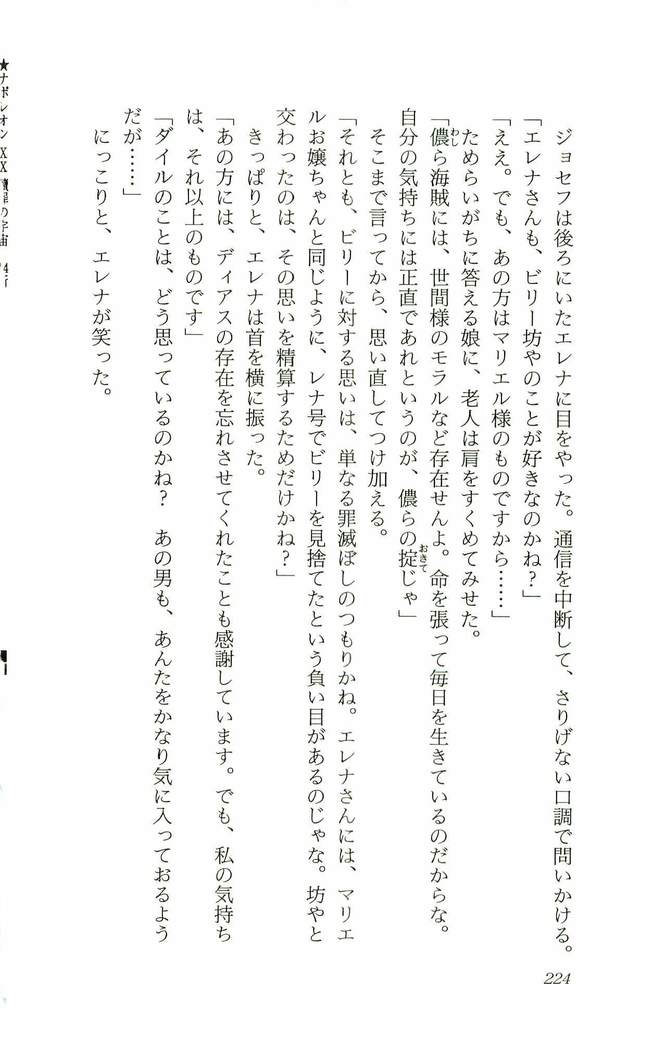 ジョセフは後ろにいたエレナに目をやった。通信を中断して、さりげない口調で問いかける。
「エレナさんも、ビリー坊やのことが好きなのかね？」
「ええ。でも、あの方はマリエル様のものですから……」
ためらいがちに答える娘に、老人は肩をすくめてみせた。
「儂ら海賊には、世間様のモラルなど存在せんよ。命を張って毎日を生きているのだからな。
自分の気持ちには正直であれというのが、儂らの掟じゃ」
そこまで言ってから、思い直してつけ加える。
「それとも、ビリーに対する思いは、単なる罪滅ぼしのつもりかね。エレナさんには、マリエ
ルお嬢ちゃんと同じように、レナ号でビリーを見捨てたという負い目があるのじゃな。坊やと
交わったのは、その思いを精算するためだけかね？」
きっぱりと、エレナは首を横に振った。
「あの方には、ディアスの存在を忘れさせてくれたことも感謝しています。でも、私の気持ち
は、それ以上のものです」
「ダイルのことは、どう思っているのかね？　あの男も、あんたをかなり気に入っておるよう
だが……」
にっこりと、エレナが笑った。
224